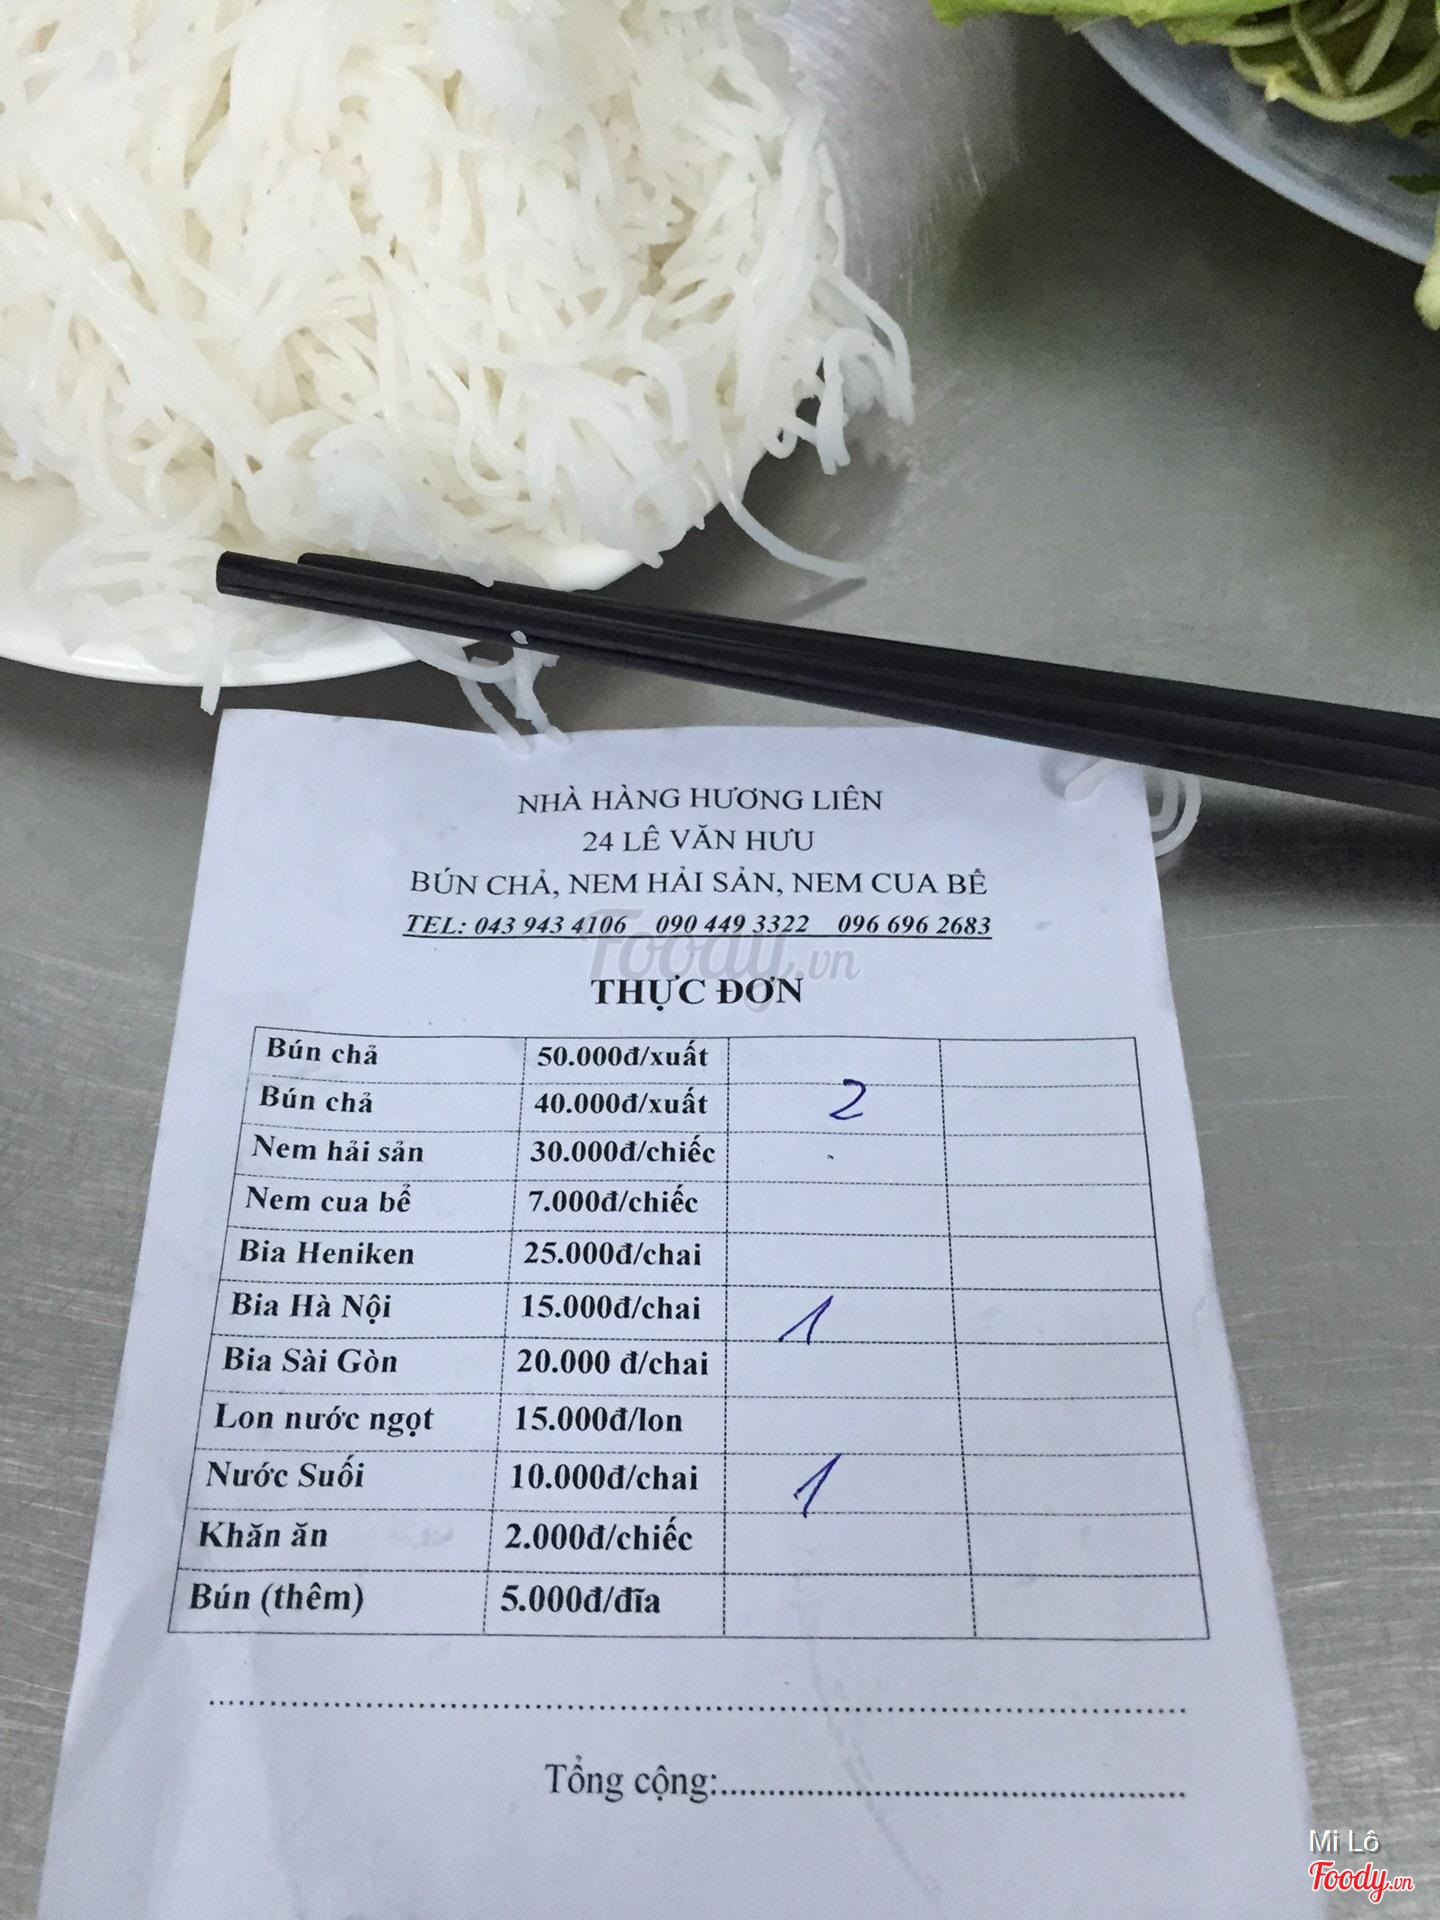 NHÀ HÀNG HƯƠNG LIÊN
24 LÊ VĂN HƯU
BÚN CHẢ, NEM HẢI SẢN, NEM CUA BỂ
TEL: 043 943 4106 090 449 3322 096 696 2683
Foody.vn
THỰC ĐƠN
Bún chả 50.000đ/xuất
Bún chả 40.000đ/xuất 2
Nem hải sản 30.000đ/chiếc
Nem cua bể 7.000đ/chiếc
Bia Heniken 25.000đ/chai
Bia Hà Nội 15.000đ/chai 1
Bia Sài Gòn 20.000 đ/chai
Lon nước ngọt 15.000đ/lon
Nước Suối 10.000đ/chai 1
Khăn ăn 2.000đ/chiếc
Bún (thêm) 5.000đ/đĩa
Tổng cộng:
Mi Lô
Foody.vn